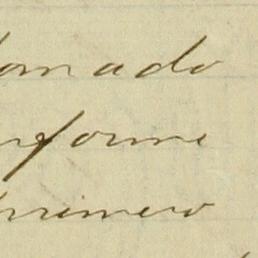 tomado
informe
primero